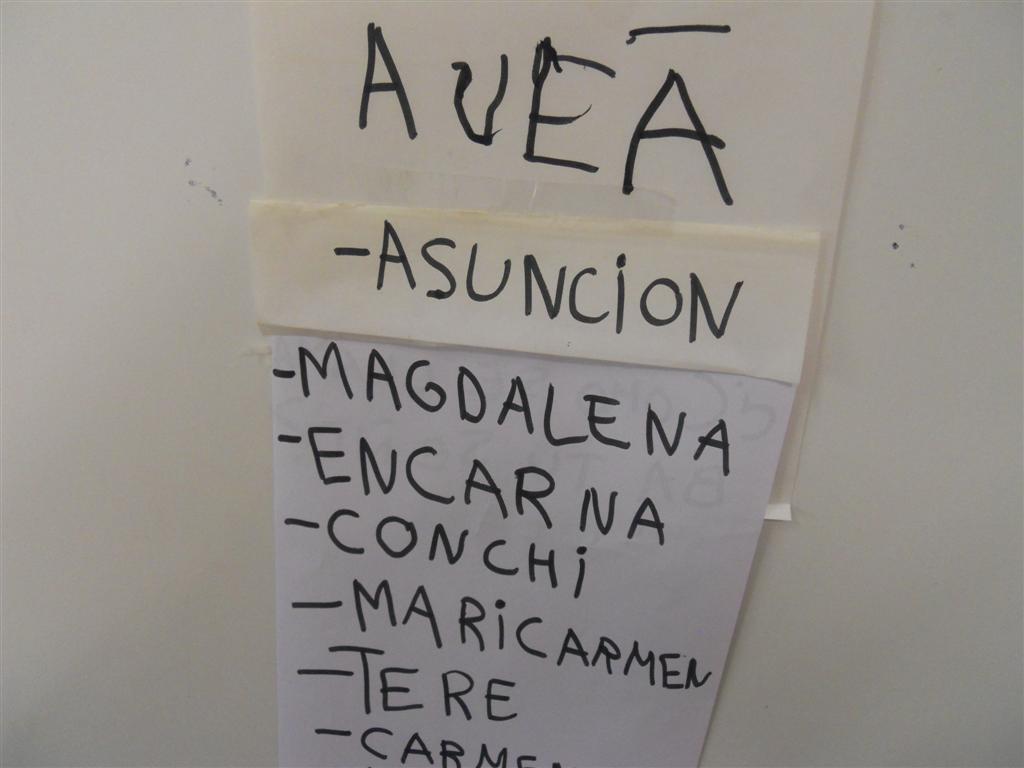 AUEA
-ASUNCiON
-MAGDALENA
-ENCARNA
-CONCHi
-MARiCARMEN
-TERE
-CARMEN